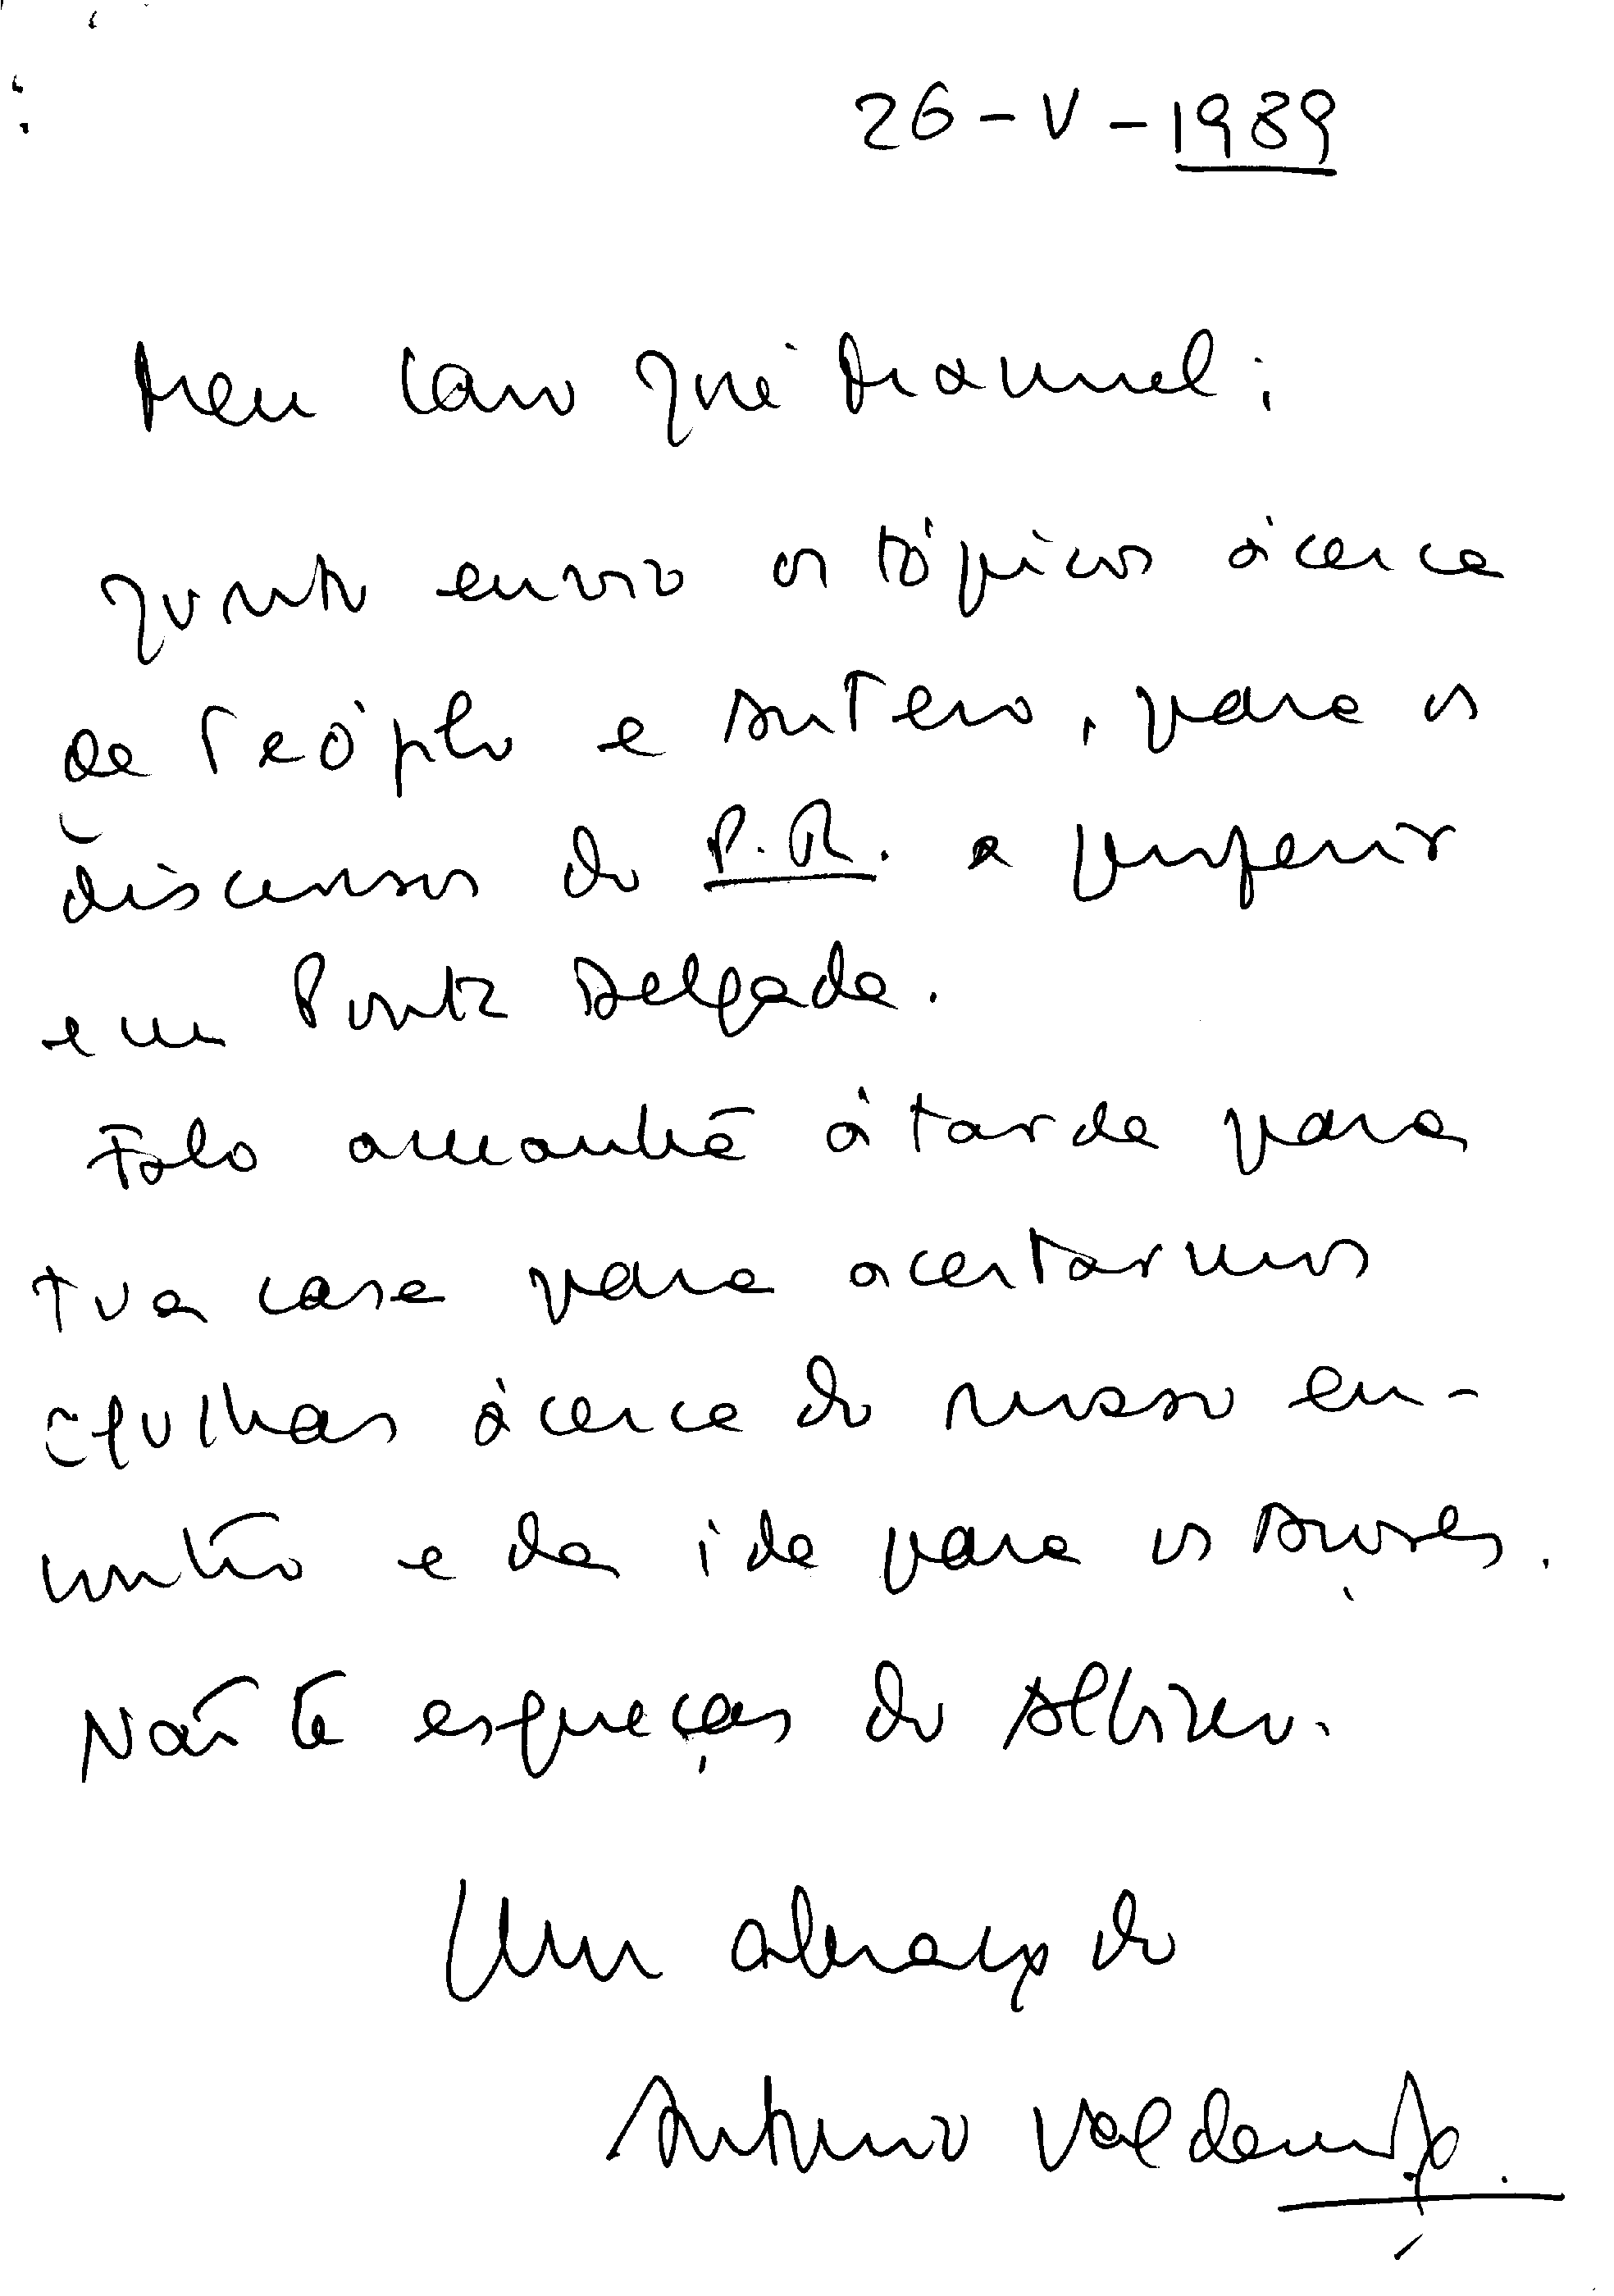 26-V-1989
Meu caro Zué Manuel:
Junto envio os tópicos àcerca
de Teóphilo e Antero, para os
discursos do P.R. a proferir
em Ponta Delgada.
Falo amanhã à tarde para
tua casa para acertarmos
agulhas àcerca do nosso en-
contro e da ida para os Açores.
Não te esqueças do
Um abraço do
António Valdemar